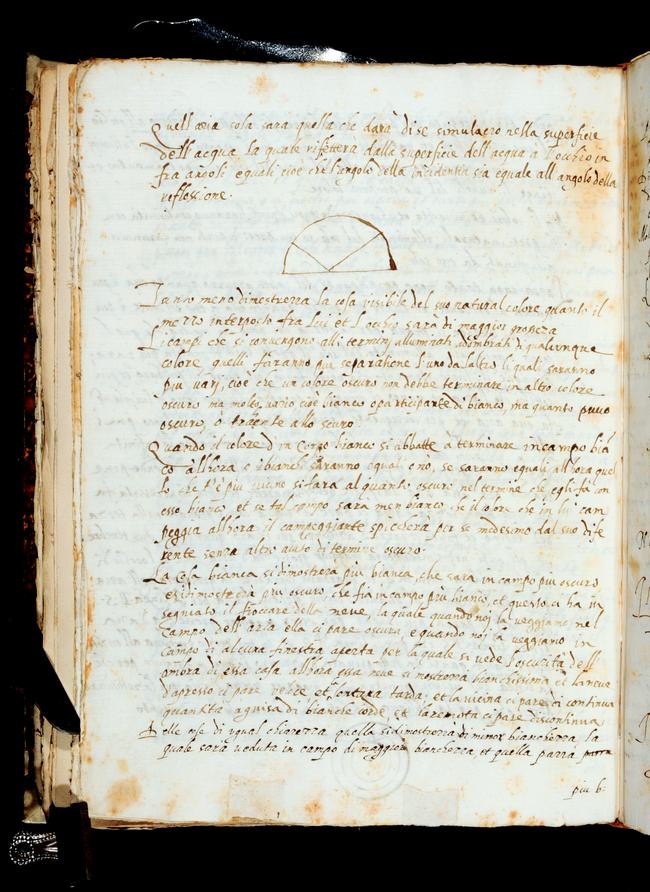 Quell aria sola sara quella che dara di se simulacro nella superficie
dell acqua la quale rifettera dalla superficie dell acqua a l occhio in
fra angoli equali cioe che l angolo della incidentia sia equale all angolo della
reflessione.
Tanto meno dimostrerra la cosa visibile del suo natural colore quanto il
mezzo interposto fra lui et l occhio sara di maggior grossezza
Li campi che si convengono alli termini alluminati adombrati di qualunque
colore quelli faranno piu separatione l uno da laltro li quali saranno
piu varij, cioe che un colore oscuro non debbe terminare in altro colore
oscuro ma molto vario cioe bianco o participante di bianco, ma quanto puoio
oscuro, o traente allo scuro
Quando il colore d un corpo bianco si abbatte a terminare in campo bia
co allhora e i bianchi saranno equali o no, se saranno equali allhora quel
lo che t'è piu vicino si fara alquanto oscuro nel termine che egli fa con
esso bianco, et se tal campo sara men bianco che il colore che in lui cam
peggia allhora il campeggiante spicchera per se medesimo dal suo dife
rente senza altro aiuto di termine oscuro.
La cosa bianca si dimostrera piu bianca, che sara in campo piu oscuro
e si dimostrera piu oscuro, che fia in campo piu bianco, et questo ci ha in
segniato il fioccare della neve, la quale quando noi la veggiamo nel
campo dell aria ella ci pare oscura, e quando noi la veggiamo in
campo di alcuna finestra aperta per la quale si vede l oscurita dell
ombra di essa casa allhora essa neve si mostrerra bianchissima et la neve
d'apresso ci pare veloce et tarda, et la vicina ci pare di continua
quantita a guisa di bianche corde, et la remota ci pare discontinua
Delle cose di equal chiarezza quella si dimostrera di minor bianchezza la
quale sara veduta in campo di maggior bianchezza et quella parra
piu b: